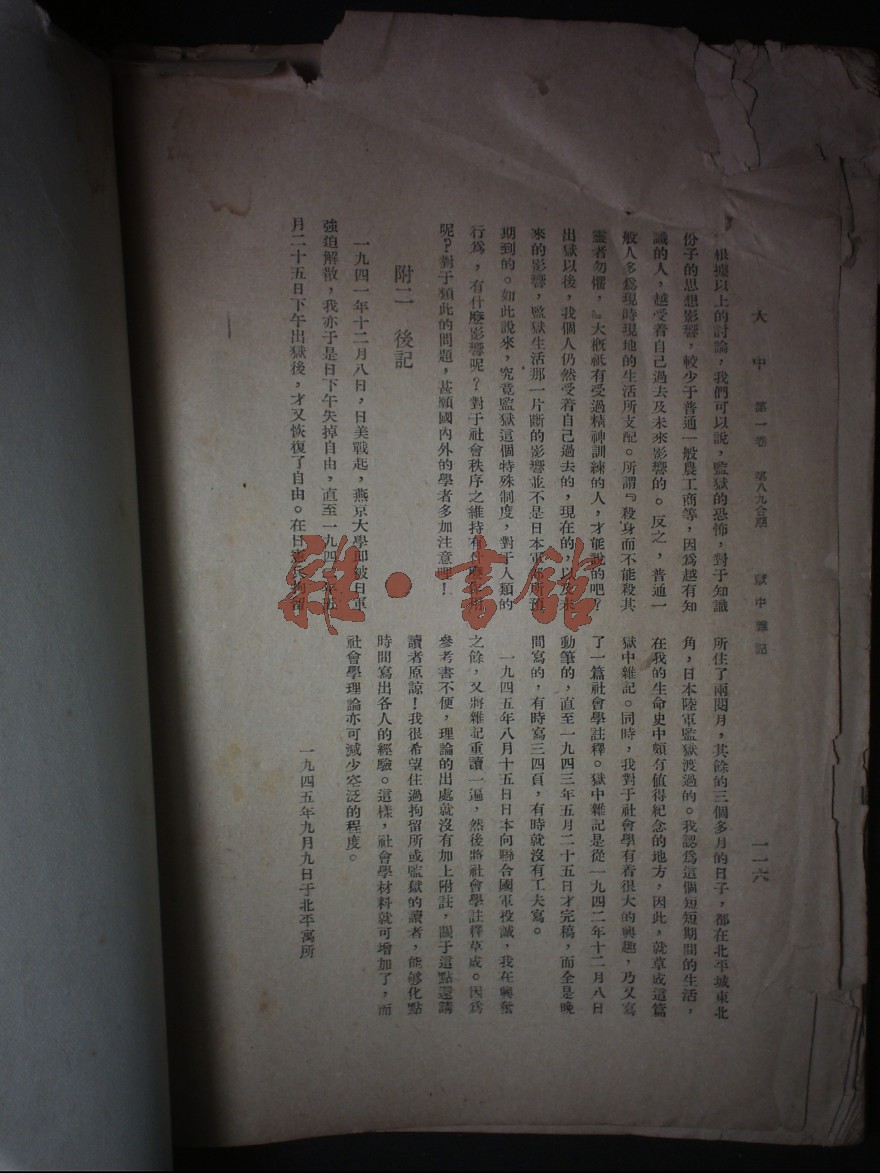 大中 第一卷 第八九合期 獄中雜記 一一六
根據以上的討論,我們可以說,監獄的恐怖,對于知識
份子的思想影響,較少于普通一般農工商等,因爲越有知
識的人,越受着自己過去及未來影響的。反之,普通一
般人多爲現時現地的生活所支配。所謂『殺身而不能殺其
靈者勿懼,』大概祇有受過精神訓練的人,才能說的吧?
出獄以後,我個人仍然受着自己過去的,現在的,以及未
來的影響,監獄生活那一片斷的影響並不是日本軍部所預
期到的。如此說來,究竟監獄這個特殊制度,對于人類的
行爲,有什麼影響呢?對于社會秩序之維持有什麼作用
呢?對于類此的問題,甚願國內外的學者多加注意吧!
附二 後記
一九四一年十二月八日,日美戰起,燕京大學即被日軍
強迫解散,我亦于是日下午失掉自由,直至一九四二年
月二十五日下午出獄後,才又恢復了自由。在日憲兵拘留
所住了兩閱月,其餘的三個多月的日子,都在北平城東北
角,日本陸軍監獄渡過的。我認爲這個短短期間的生活,
在我的生命史中頗有值得紀念的地方,因此,就草成這篇
獄中雜記。同時,我對于社會學有着很大的興趣,乃又寫
了一篇社會學註釋。獄中雜記是從一九四二年十二月八日
動筆的,直至一九四三年五月二十五日才完稿,而全是晚
間寫的,有時寫三四頁,有時就沒有工夫寫。
一九四五年八月十五日日本向聯合國軍投誠,我在興奮
之餘,又將雜記重讀一遍,然後將社會學註釋草成。因爲
參考書不便,理論的出處就沒有加上附註,關于這點還請
讀者原諒!我很希望住過拘留所或監獄的讀者,能够化點
時間寫出各人的經驗。這樣,社會學材料就可增加了,而
社會學理論亦可減少空泛的程度。
一九四五年九月九日于北平寓所
雜·書館